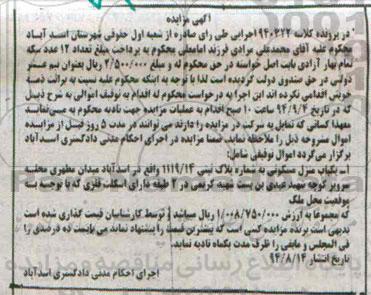 آگهی مزایده
در پرونده کلاسه ۹۴۰۳۲۲ اجرایی طی رای صادره از شعبه اول حقوقی شهرستان اسدآباد
محکوم علیه آقای محمدعلی مرادی فرزند امامعلی محکوم به پرداخت مبلغ تعداد ۱۲ عدد سکه
تمام بهار آزادی بابت اصل خواسته در حق محکوم له و مبلغ ۲/۵۰۰/۰۰۰ ریال بعنوان نیم عشر
دولتی در حق صندوق دولت گردیده است لذا با توجه به اینکه محکوم علیه نسبت به برائت ذمه
خویش اقدامی نکرده اند این اجرا به درخواست محکوم له اقدام به توقیف اموالی به شرح ذیل
که در تاریخ ۹۴/۹/۴ ساعت ۱۰ صبح اقدام به عملیات مزایده جهت تادیه محکوم به می نماید
کسانی که تمایل به شرکت در مزایده را دارند می توانند در مدت ۵ روز قبل از مزایده
اموال مشروحه ذیل را ملاحظه نماید. ضمنا مزایده در اجرای احکام مدنی دادگستری اسدآباد
برگزار می گردد اموال توقیفی شامل:
۱- یکباب منزل مسکونی به شماره پلاک ثبتی ۱۱۱۹/۱۴ واقع در اسدآباد میدان مطهری محله
سرویر کوچه شهید عبدی بن بست شهید کریمی در ۲ طبقه دارای اسکلت فلزی که با توجه به
موقعیت محل ملک
که مجموعا به ارزش ۱/۰۰۸/۷۵۰/۰۰۰ ریال میباشد توسط کارشناسان قیمت گذاری شده است
بدیهی است برنده مزایده کسی است که بیشترین قیمت را پیشنهاد نماید می بایست ده درصدی را
فی المجلس و مابقی را ظرف مدت یکماه تادیه نماید.
تاریخ انتشار ۹۴/۸/۱۴
اجرای احکام مدنی دادگستری اسدآباد